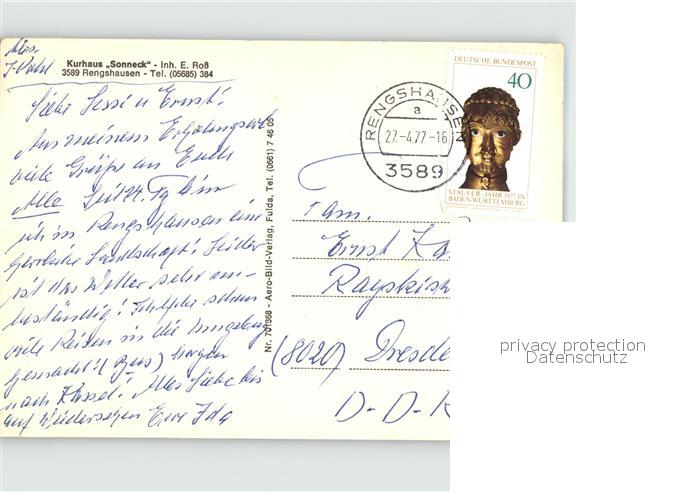 Abs.
Kurhaus „Sonneck" - Inh. E. Roß
3589 Rengshausen - Tel. (05685) 384
Liebe Sessi u Ernst!
Aus meinem
viele Grüße an Euch
Alle Seit 24. bin
ich in Rengshausen eine
herrliche Landschaft! Leider
ist das Wetter sehr un-
beständig! schon
viele Reisen in die Umgebung
gemacht! (Bus) morgen
nach Kassel! Alles Liebe bis
auf Wiedersehen Eure Ida
Nr. 701368 - Aero-Bild-Verlag, Fulda, Tel. (0661) 7 46 05
RENGSHAUSEN
a
27.-4.77-16
3589
DEUTSCHE BUNDESPOST
40
STAUFER-JAHR 1977 IN
BADEN-WÜRTTEMBERG
Fam.
Ernst
(8020) Dresde
D-D-R
privacy protection
Datenschutz